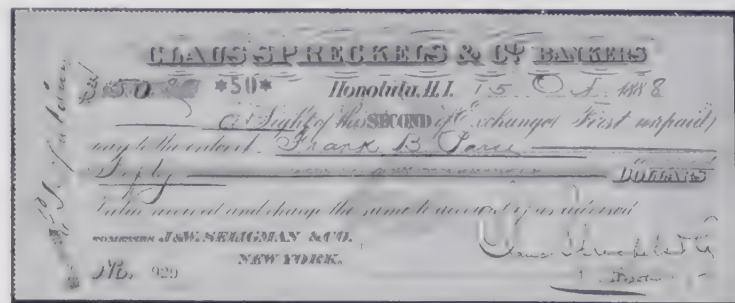 CLAUS SPRECKELS & Co. BANKERS
$50 *50* Honolulu, H.I. 15 Oct 1888
At Sight of this SECOND of Exchange (First unpaid)
pay to the order of Frank B.
Fifty DOLLARS
Value received and charge the same to account of as advised
J&W. SELIGMAN & CO.
NEW YORK.
No. 929
Claus Spreckels & Co